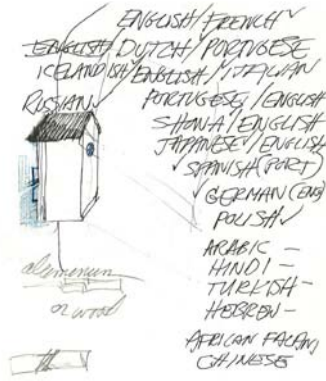 ENGLISH/FRENCH✓
ENGLISH/DUTCH/PORTUGESE
ICELANDISH/ENGLISH/ITALIAN
RUSSIAN PORTUGESE/ENGLISH
SHONA/ENGLISH
JAPANESE/ENGLISH
✓SPANISH (PORT)
GERMAN (ENG)
POLISH✓
ARABIC –
HINDI –
TURKISH –
HEBREW –
AFRICAN
CHINESE
aluminium
or wood